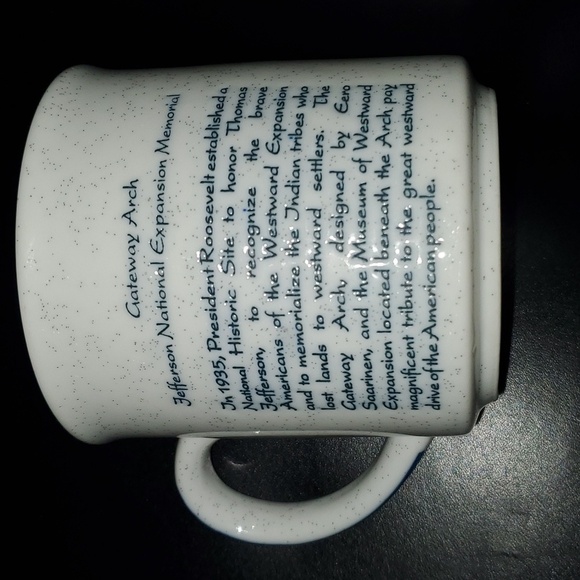 Gateway Arch
Jefferson National Expansion Memorial
In 1935, President Roosevelt established a
National Historic Site to honor Thomas
Jefferson, to recognize the brave
Americans of the Westward Expansion
and to memorialize the Indian tribes who
lost lands to westward settlers. The
Gateway Arch designed by Eero
Saarinen, and the Museum of Westward
Expansion located beneath the Arch pay
magnificent tribute to the great westward
drive of the American people.